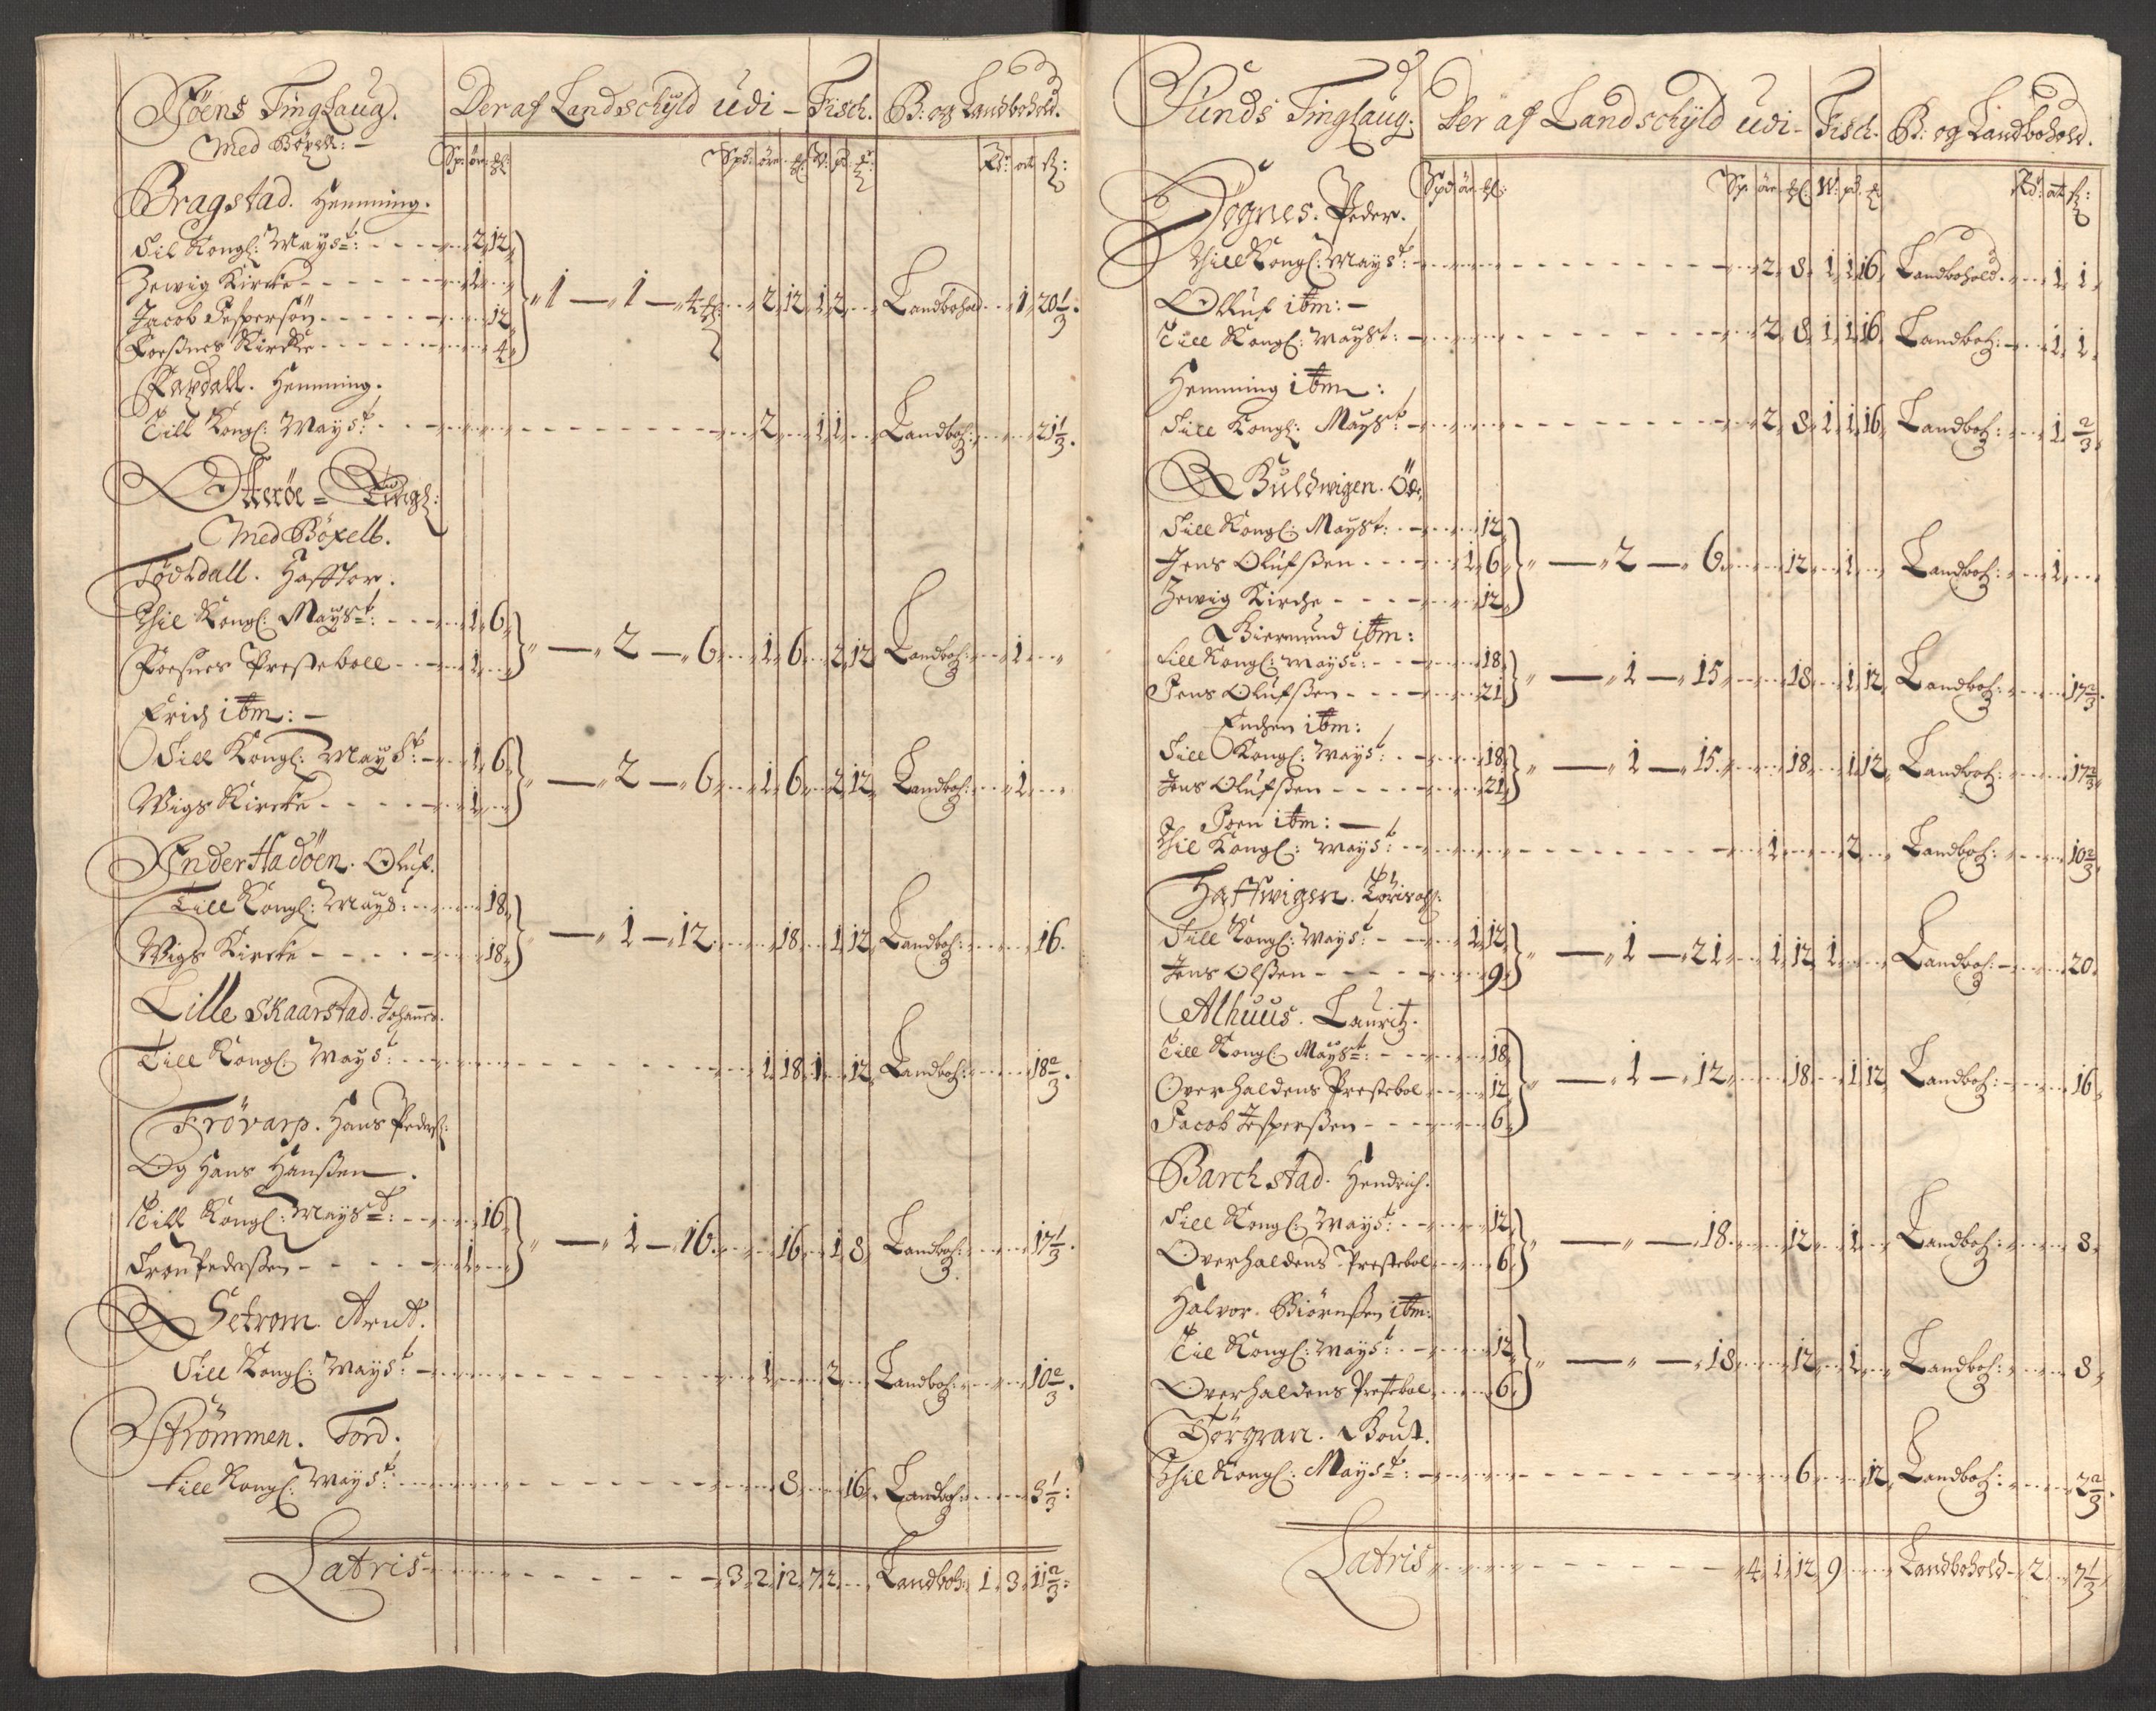 Föens TingLaug. Deraf Landschyld udi - Fisch. B: og Landbohold.
Med Böxell: -
Sp: öre. Spd: öre. W: pd. Rd: ort ß:
Bragstad. Hemming.
Til Kongl: Mayst: 2. 12.
Zewig Kircke 1.
Jacob Jespersön 12. 1 — 1 — 4 2. 12. 1. 2. Landbohold 1. 20 1/3.
Foesnes Kircke 4.
Ravdall. Hemming.
Till Kongl: Mayst: 2. 1. 1. Landboh: 21 1/3.
Otteröe = Tingl:
Med Böxell.
Födtdall. Hafftor.
Thil Kongl: Mayst: 1. 6.
Foesnes Presteboll 1. — 2 — 6. 1. 6. 2. 12. Landboh: 1.
Erich itm: -
Till Kongl: Mayst: 1. 6.
Wigs Kircke 1. — 2 — 6. 1. 6. 2. 12. Landboh: 1.
Ynder Hadöen. Oluf.
Till Kongl: Mayst: 18.
Wigs Kircke 18. — 1 — 12. 18. 1. 12. Landboh: 16.
Lille Skaarstad. Johannes.
Till Kongl: Mayst: 1. 18. 1. 12. Landboh: 18 2/3.
Frövarp. Hans Peders:
Og Hans Hanßen.
Till Kongl: Mayst: 16.
Iron Pederßen 1. — 1 — 16. 16. 1. 8. Landboh: 17 1/3.
Setrom. Arnt.
Till Kongl: Mayst: 1. 2. Landboh: 10 2/3.
Strömmen. Tord.
Till Kongl: Mayst: 8. 16. Landboh: 3 1/3:
Latris 3. 2. 12. 7. 2. Landboh: 1. 3. 11 2/3:
Sunds Tinglaug. Der af Landschyld udi - Fisch. B: og Landbohold.
Spd öre Sp: öre W: pd. Rd: ort ß:
Dögnes. Peder.
Thill Kongl: Mayst: 2. 8. 1. 1. 16. Landbohold 1. 1.
Olluf itm: -
Till Kongl: Mayst: 2. 8. 1. 1. 16. Landboh: 1. 1.
Hemming itm:
Till Kongl: Mayst: 2. 8. 1. 1. 16. Landboh: 1. 2/3.
Buldwigen. Ode
Till Kongl: Mayst: 12.
Jens Olufßen 1. 6. — 2 — 6. 12. 1. Landboh: 1.
Zewig Kirche 12.
Biermund itm:
till Kongl: Mayst: 18.
Jens Olufßen 21. — 1 — 15. 18. 1. 12. Landboh: 17 2/3.
Enchen itm:
Till Kongl: Mayst: 18.
Jens Olufßen 21. — 1 — 15. 18. 1. 12. Landboh: 17 2/3.
Joen itm: —
Thil Kongl: Mayst: 1. 2. Landboh: 10 2/3.
Haffwigen.
Till Kongl: Mayst: 1. 12.
Jens Olßen 9. — 1 — 21. 1. 12. 1. Landboh: 20.
Alhuus. Lauritz.
Till Kongl: Mayst: 18.
Overhaldens Prestebol 12. — 1 — 12. 18. 1. 12. Landboh: 16.
Jacob Jesperßen 6.
Barchstad. Hendrich.
Till Kongl: Mayst: 12.
Overhaldens Prestebol 6. — — 18. 12. 1. Landboh: 8.
Halvor. Biörnßen itm:
Til Kongl: Mayst: 12.
Overhaldens Prestebol 6. — — 18. 12. 1. Landboh: 8.
Törgran. Knut.
Thil Kongl: Mayst: 6. 12. Landboh: 2 2/3.
Latris 4. 1. 12. 9. Landbohold 2. 7 1/3.